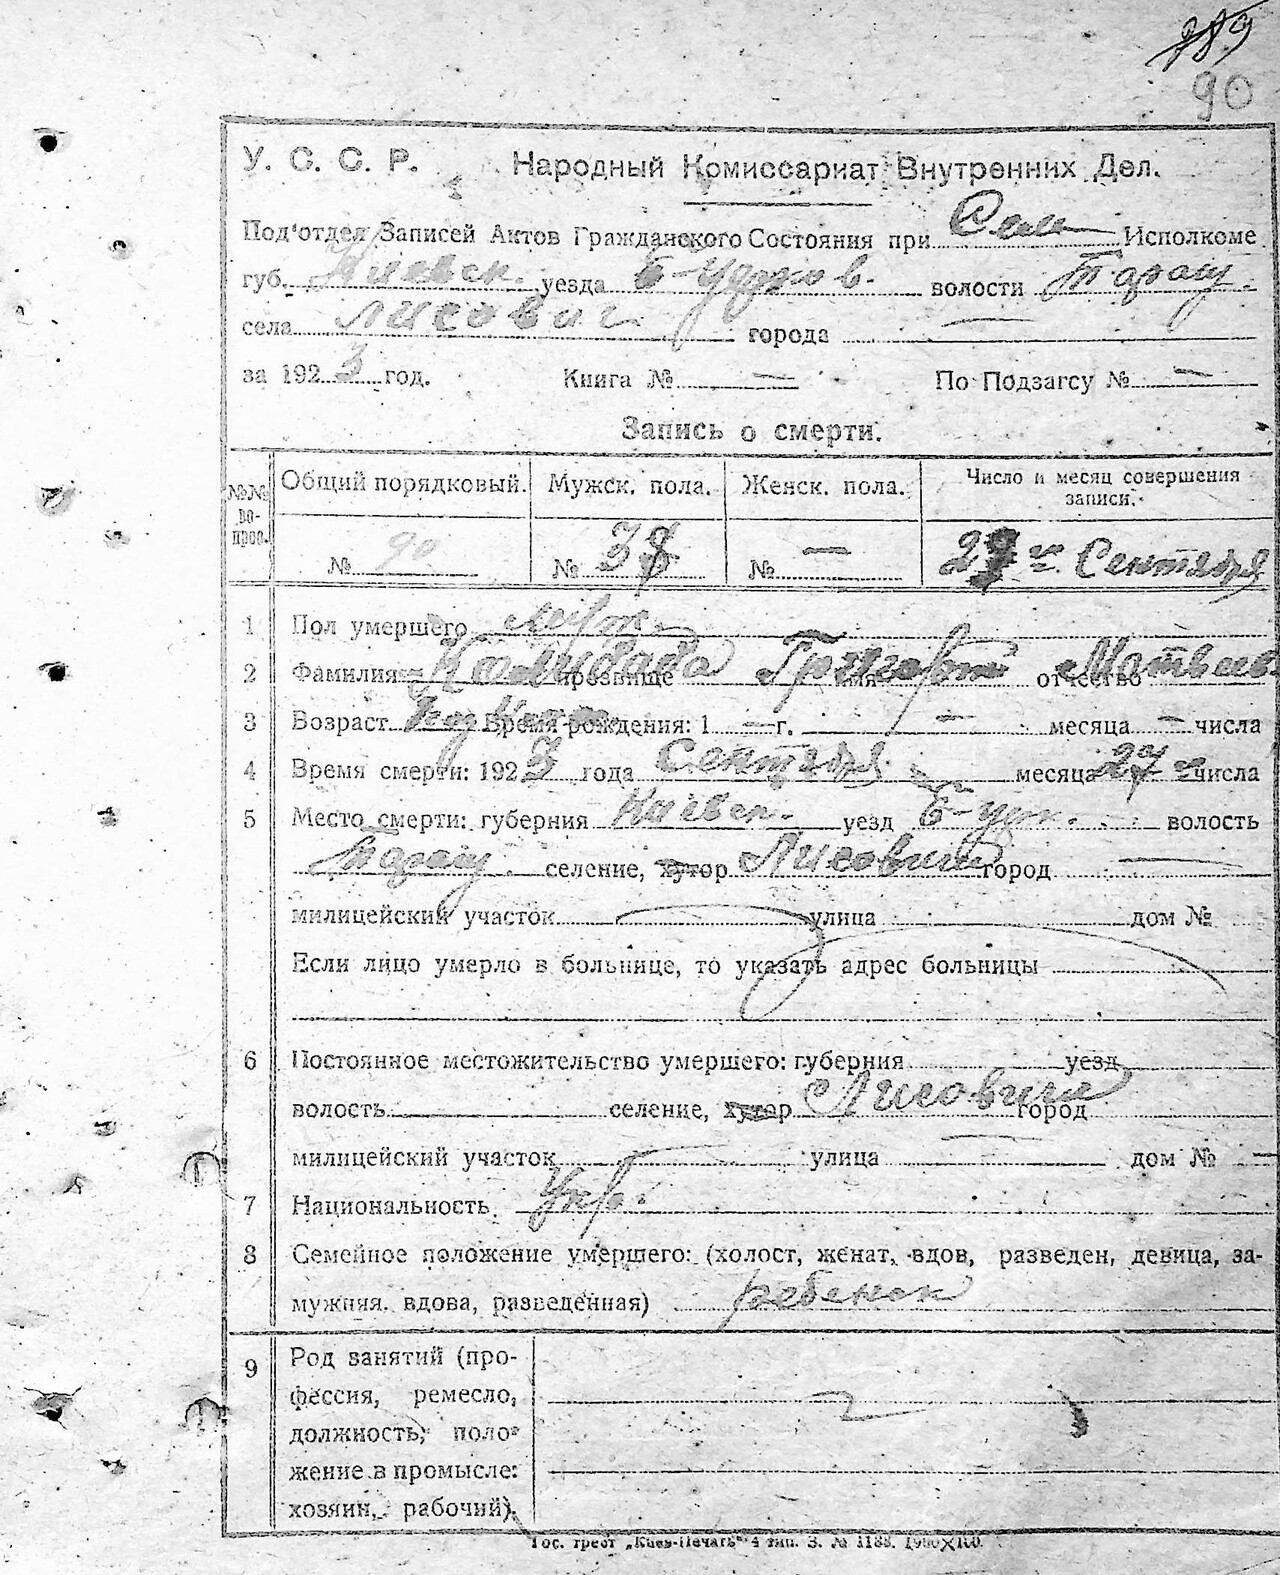 90
У. С. С. Р. Народный Комиссариат Внутренних Дел.
Под'отдел Записей Актов Гражданского Состояния при Сель Исполкоме
губ. Киевск. уезда Б-Церков. волости Таращ.
села Лисович города —
за 1923 год. Книга № — По Подзагсу № —
Запись о смерти.
№№ вопрос. Общий порядковый. Мужск. пола. Женск. пола. Число и месяц совершения записи.
№ 90 № 38 № — 27го Сентября
1 Пол умершего муж.
2 Фамилия—прозвище имя Григорий отчество Матвеев.
3 Возраст Время рождения: 1 — г. — месяца — числа
4 Время смерти: 1923 года Сентября месяца 27 числа
5 Место смерти: губерния Киевск. уезд Б-Церк. волость
Таращ. селение, хутор Лисовичи город —
милицейский участок улица дом №
Если лицо умерло в больнице, то указать адрес больницы
6 Постоянное местожительство умершего: губерния уезд
волость селение, хутор Лисовичи город
милицейский участок улица — дом № —
7 Национальность Укр.
8 Семейное положение умершего: (холост, женат, вдов, разведен, девица, за-
мужняя, вдова, разведенная) ребенок
9 Род занятий (про-
фессия, ремесло,
должность, поло-
жение в промысле:
хозяин, рабочий).
Гос. трест „Киев-Печать" 4 тип. З. № 1188.